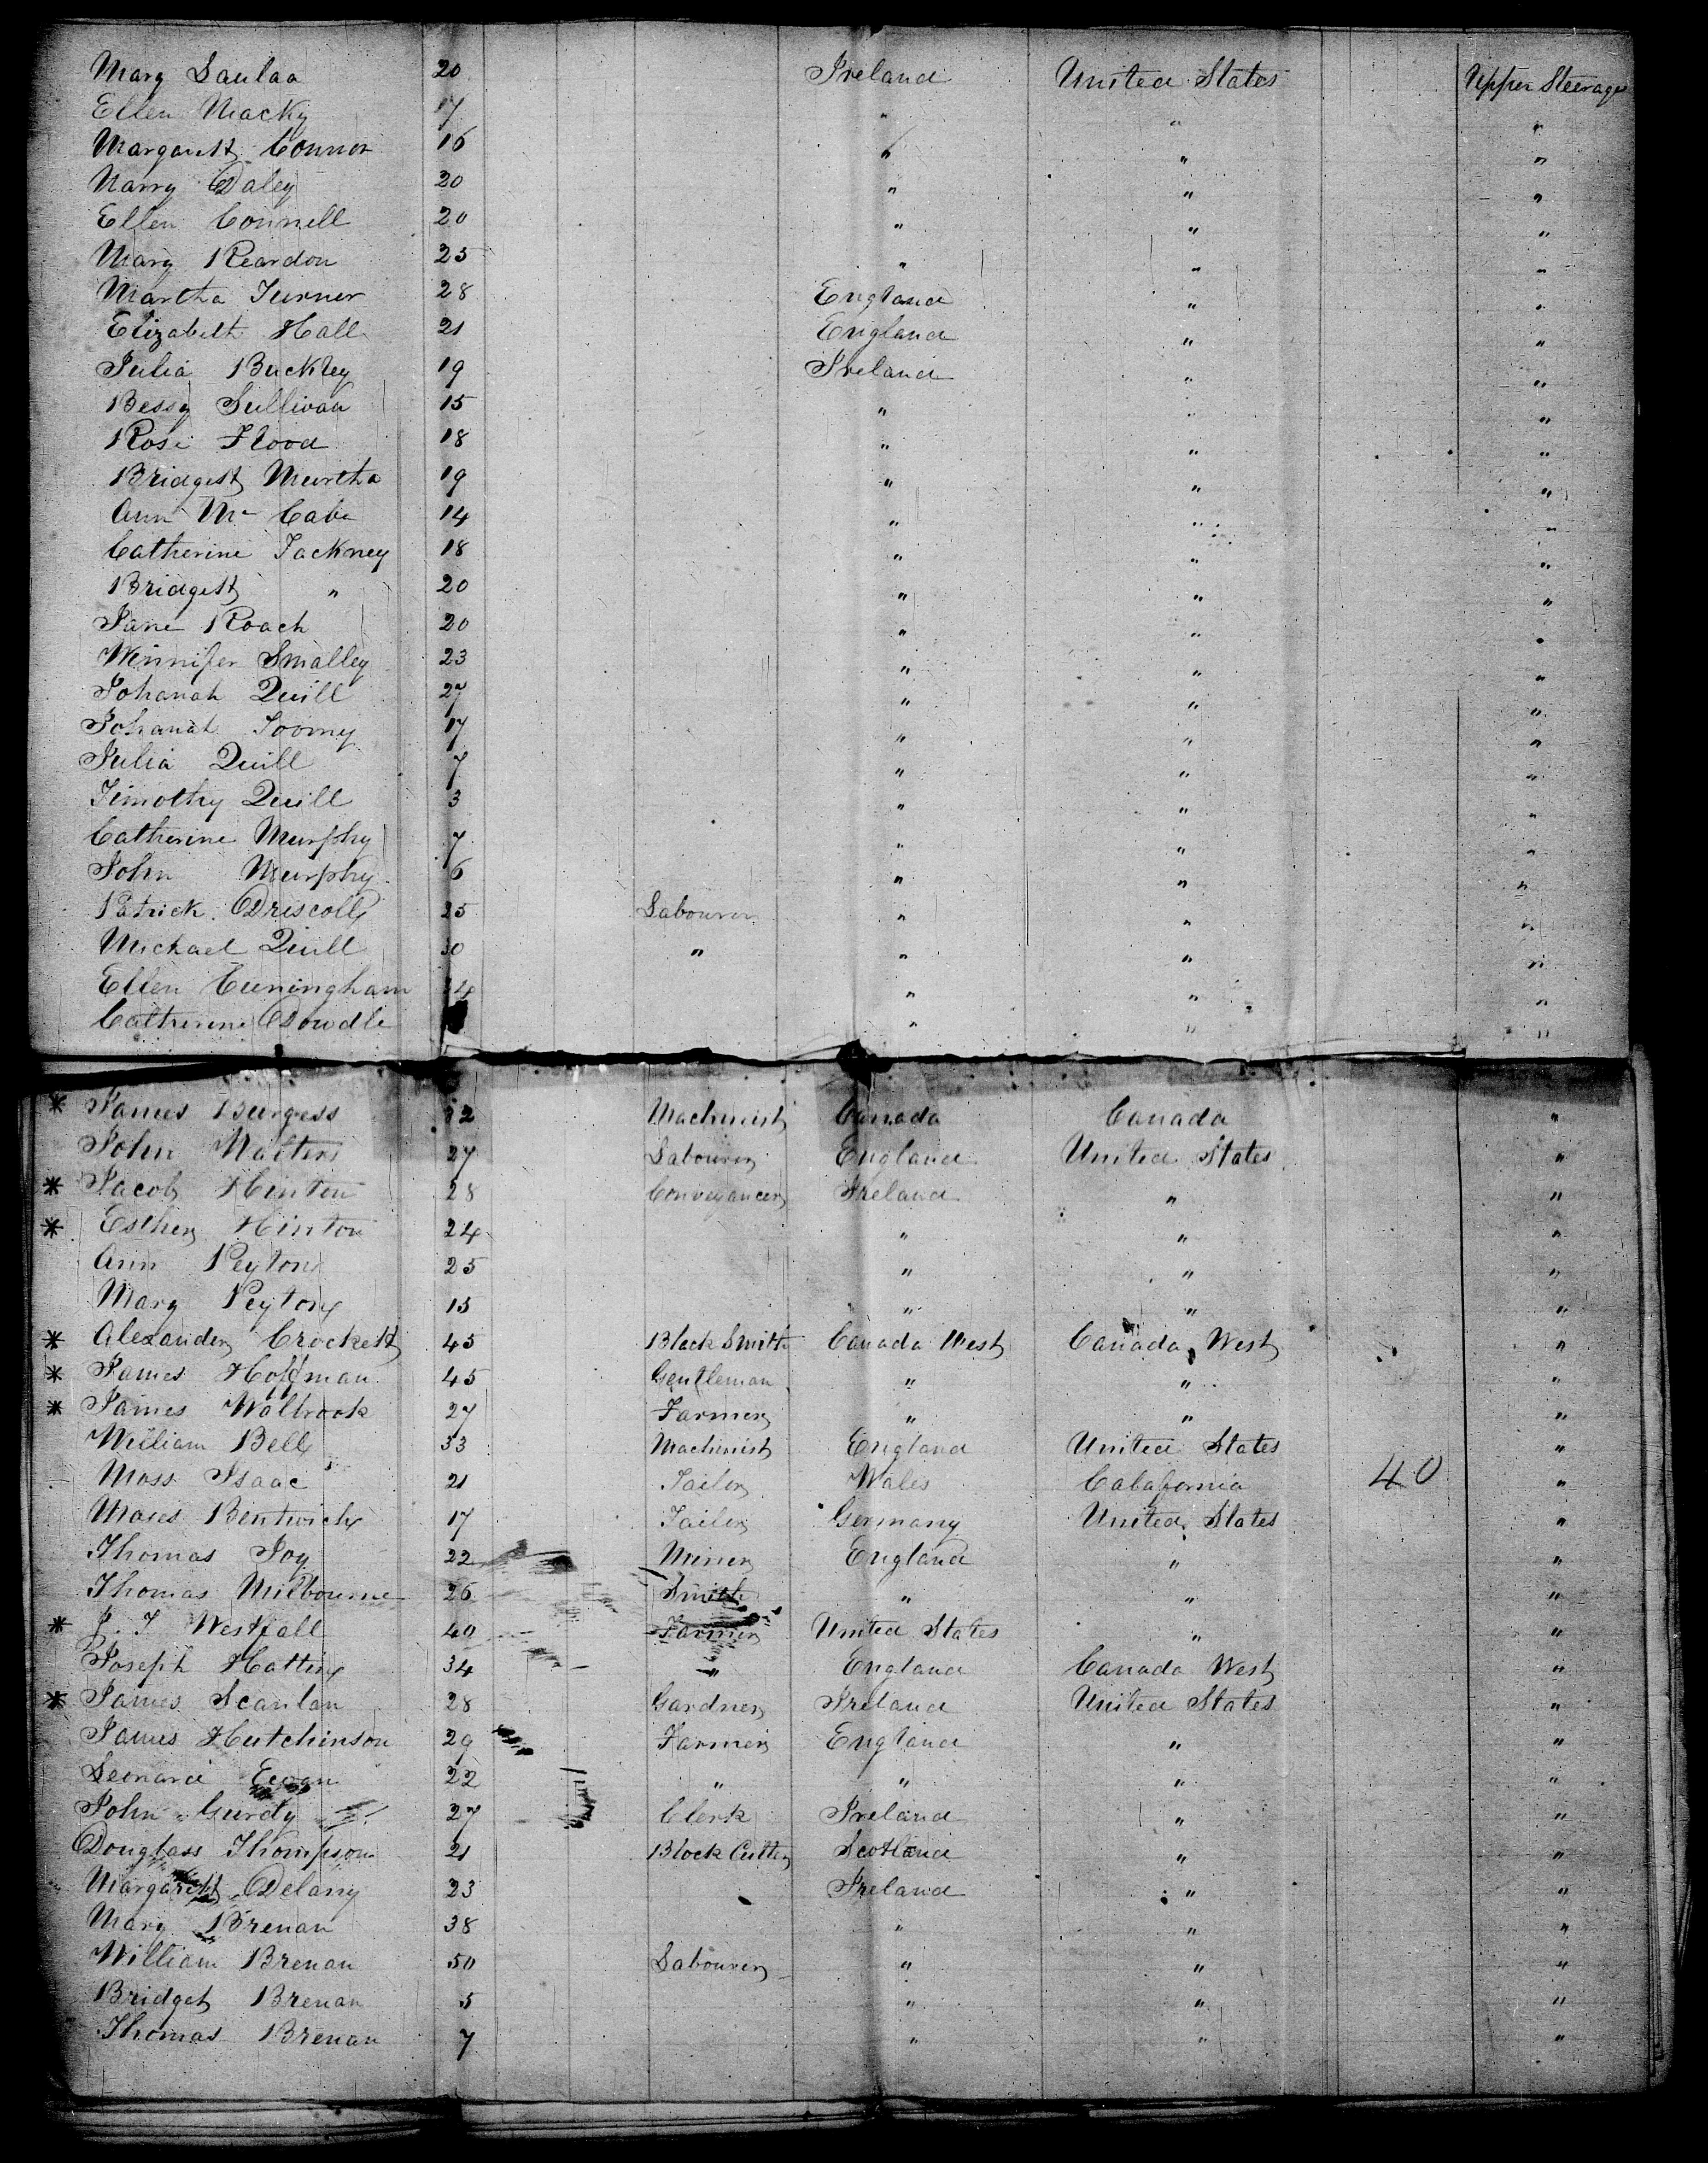 Mary Saulaa 20 Ireland United States Upper Steerage
Ellen Macky 17 " " "
Margarett Connor 16 " " "
Harry Daley 20 " " "
Ellen Connell 20 " " "
Mary Reardon 25 " " "
Martha Turner 28 England " "
Elizabeth Hall 21 England " "
Julia Buckley 19 Ireland " "
Bessy Sullivan 15 " " "
Rose Flood 18 " " "
Bridgett Murtha 19 " " "
Ann Mc Cabe 14 " " "
Catherine Tackney 18 " " "
Bridgett " 20 " " "
Jane Roach 20 " " "
Winnifer Smalley 23 " " "
Johanah Quill 27 " " "
Johanah Toomy 17 " " "
Julia Quill 7 " " "
Timothy Quill 3 " " "
Catherine Murphy 7 " " "
John Murphy 6 " " "
Patrick Driscoll 25 Labourer " " "
Michael Quill 30 " " " "
Ellen Cuningham 24 " " "
Catherine Dowdle " " "
* James Burgess 32 Machinist Canada Canada "
John Walters 27 Labourer England United States "
* Jacob Hinton 28 Conveyancer Ireland " "
* Esther Hinton 24 " " "
Ann Peyton 25 " " "
Mary Peyton 15 " " "
* Alexander Crockett 45 Black Smith Canada West Canada West "
* James Hoffman 45 Gentleman " " "
* James Wallbrook 27 Farmer " " "
William Bell 33 Machinist England United States "
Moss Isaac 21 Tailor Wales Calafornia 40 "
Moses Bentwich 17 Tailor Germany United States "
Thomas Joy 22 Miner England " "
Thomas Milbourne 26 Smith " " "
* J. T Westfall 40 Farmer United States " "
Joseph Hatting 34 " England Canada West "
* James Scanlan 28 Gardner Ireland United States "
James Hutchinson 29 Farmer England " "
Leonard Ewan 22 " " " "
John Gurdy 27 Clerk Ireland " "
Douglass Thompson 21 Block Cutter Scotland " "
Margarett Delany 23 Ireland " "
Mary Brenan 38 " " "
William Brenan 50 Labourer " " "
Bridget Brenan 5 " " "
Thomas Brenan 7 " " "